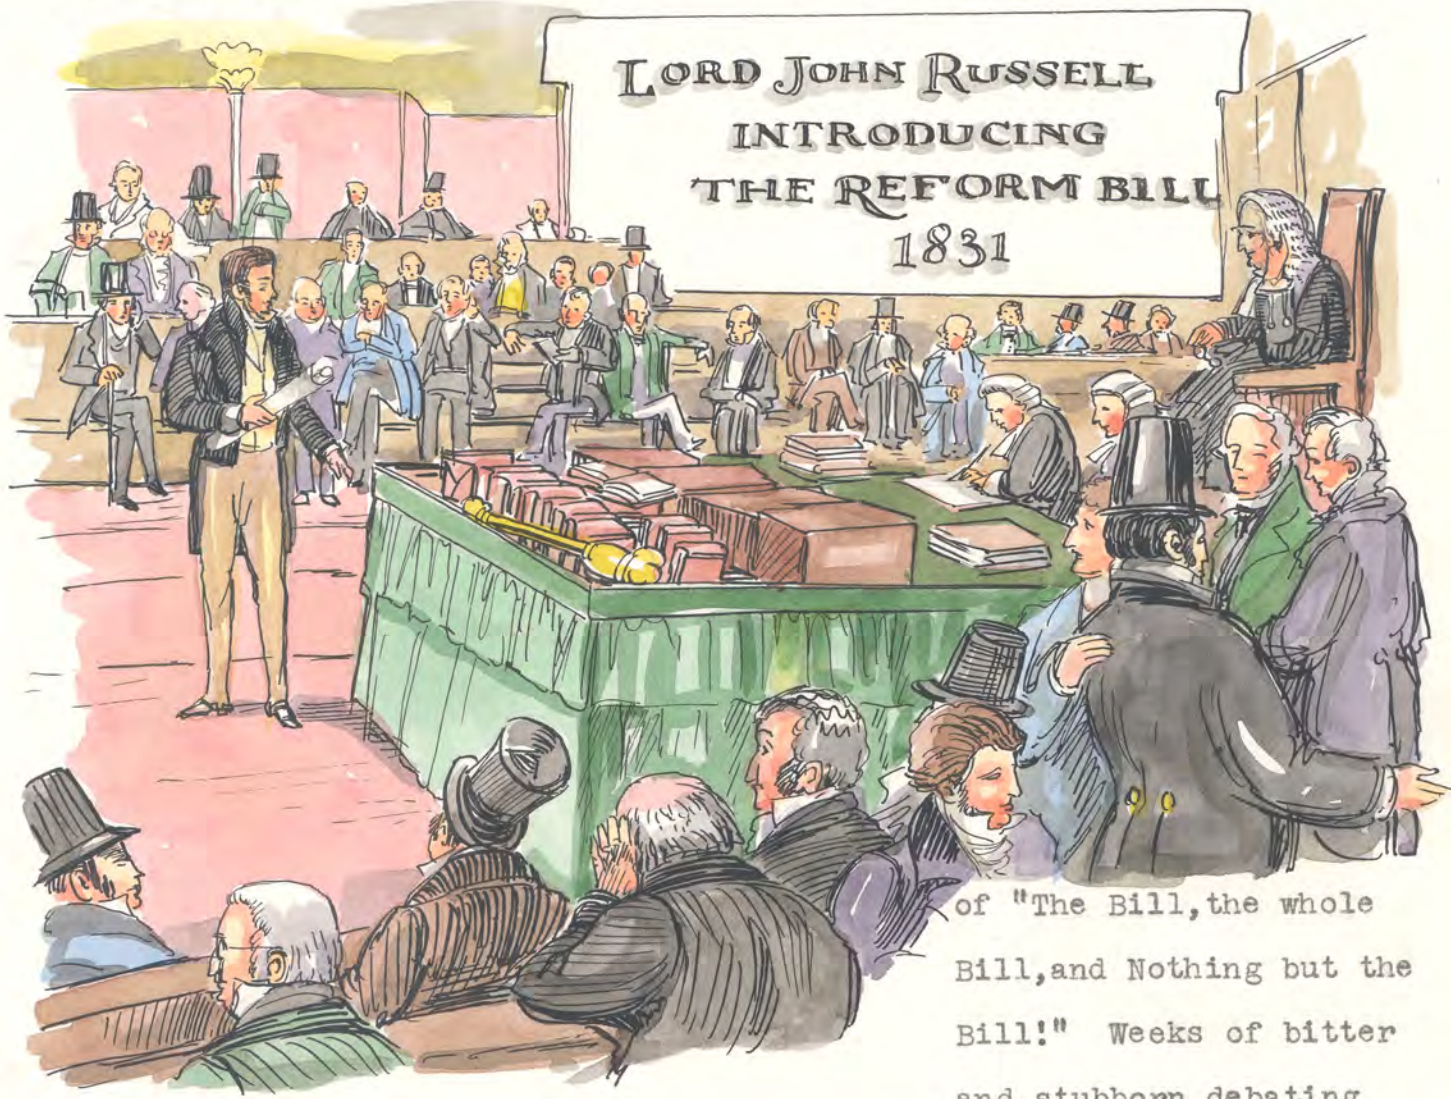 LORD JOHN RUSSELL
INTRODUCING
THE REFORM BILL
1831
of "The Bill,the whole
Bill,and Nothing but the
Bill!" Weeks of bitter
and stubborn debating